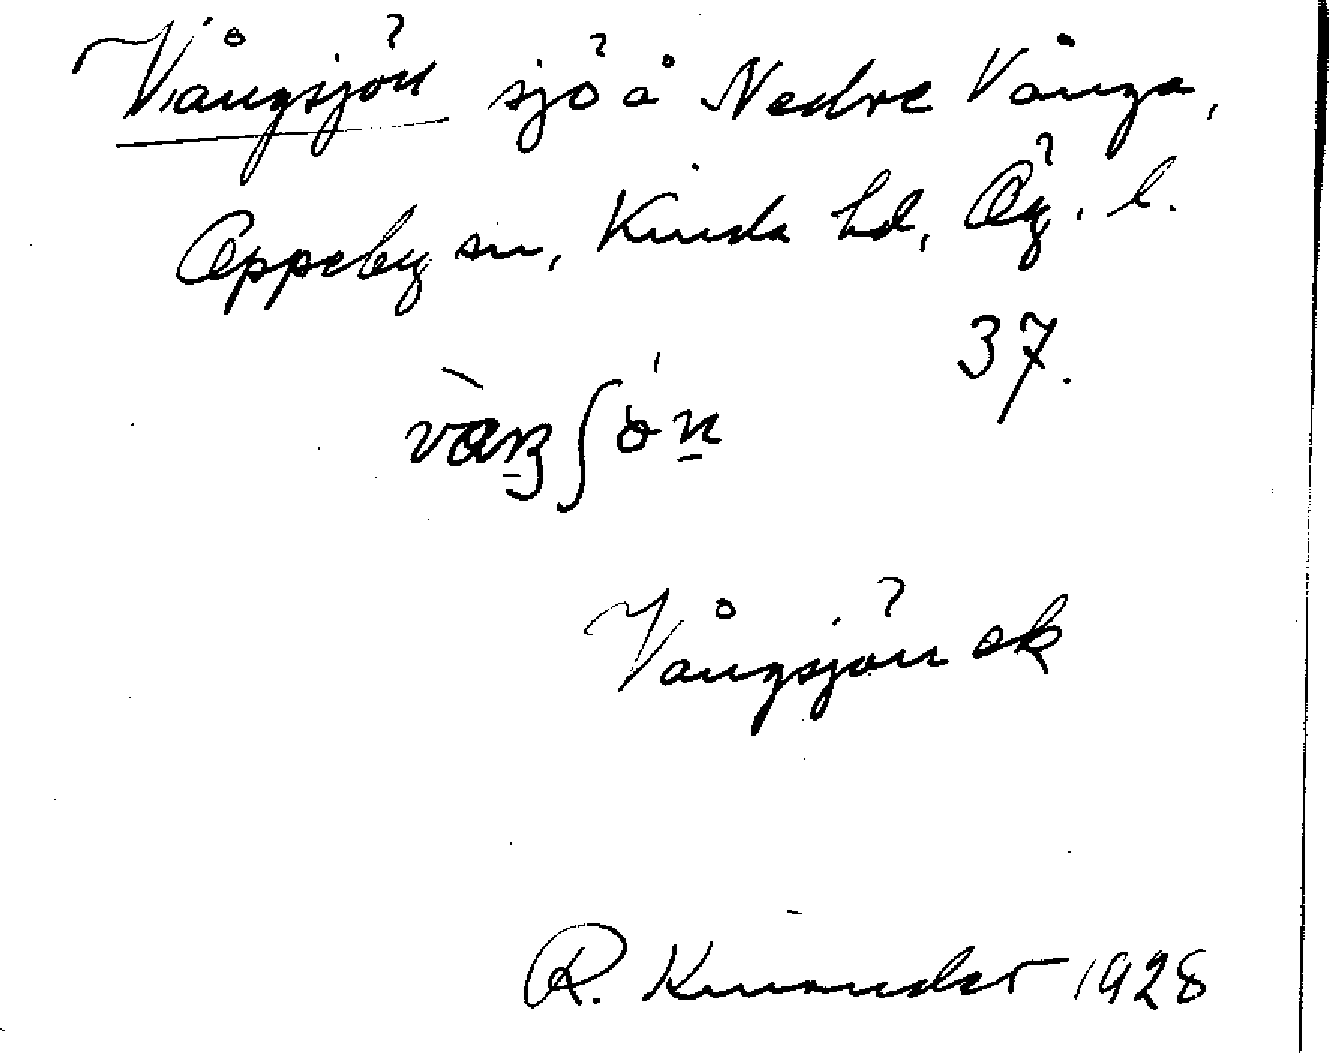 Vångsjön sjö å Nedre Vånga,
Oppeby sn, Kinda hd, Ög. l.
37.
Vångsjön ek
R. Kinander 1928